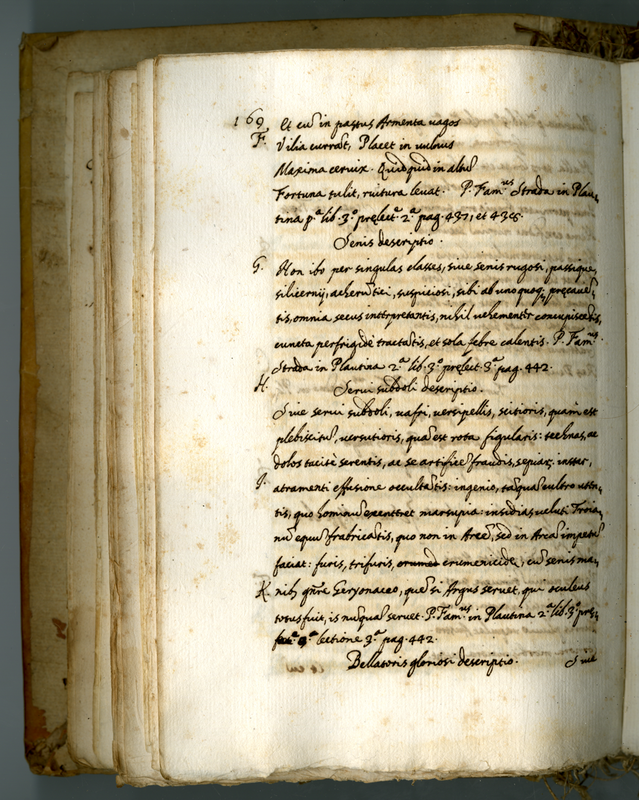 169 Et cũ in pastus Armenta vagos
F. Vilia currãt, Placet in vulnus
Maxima cervix. Quidquid in altũ
Fortuna tulit, ruitura levat. P. Famus Strada in Plau,
tina pa lib. 3o prelect. 2a pag. 437, et 438.
Senis descriptio.
G. Non ibo per singulas classes, sive senis rugosi, passique,
silicernij, acherũtici, suspiciosi, sibi ab uno quoq; precavẽ,
tis, omnia secus interpretantis, nihil vehementer concupiscẽtis,
cuncta perfrigidè tractãtis, et sola febre calentis. P. Famus
Strada in Plautina 2a lib. 3o prelect. 3a pag. 442.
H. Servi subdoli descriptio.
Sive servi subdoli, vafri, versipellis, scitioris, quam est
plebiscitũ, versutioris, quã est rota figularis: technas, ac
dolos tacitè serentis, ac se artifice fraudis, sepiar. instar,
J. atramenti effusione occultãtis: ingenio, tãquã cultro utẽ,
tis, quo hominũ exenteret marsupia: insidias veluti Troia,
nũ equũ fabricãtis, quo non in Arcẽ, sed in Arcã impetũ
faciat: furis, trifuris, crumenicidę, cũ senis ma,
K. nib. gñre Geryonaceo, quẽ si Argus servet, qui oculeus
totus fuit, is nũquã servet. P. Famus in Plautina 2a lib. 3o pre,
lectione 3a pag. 442.
Bellatoris gloriosi descriptio. Sive